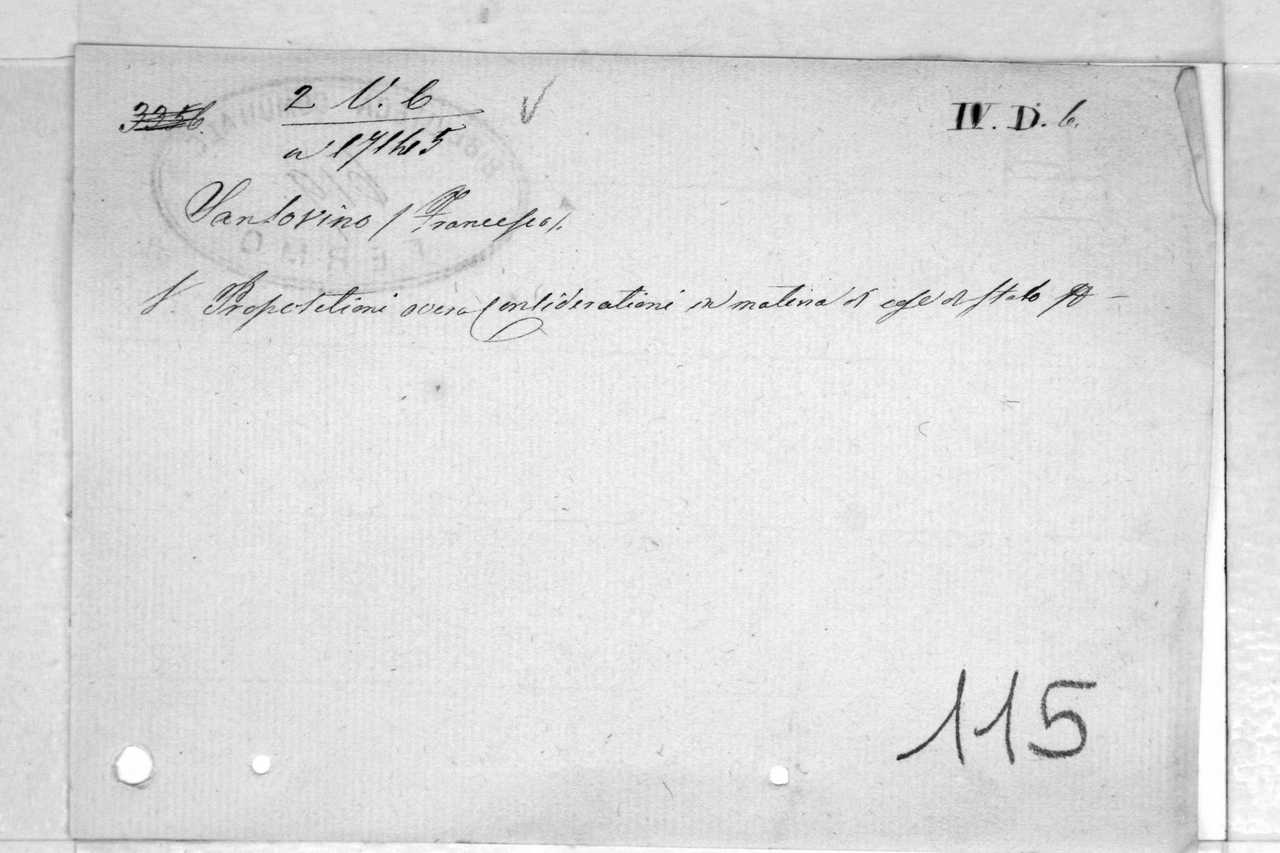 3356. 2 V. 6 V IV. D. 6.
n 17145
Sansovino / Francesco /.
V. Propositioni overo Considerationi in materia di cose di stato
115